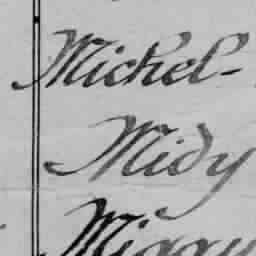 Michel-
Midy